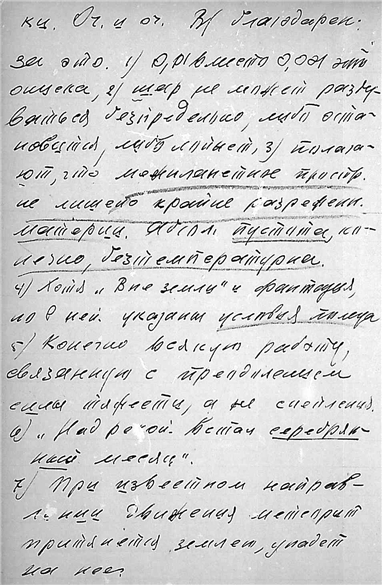 ки. Оч. и оч. Вл благодарен.
за это. 1) 0,01 вместо 0,001 это
описка, 2) шар не может разду-
ваться безпредельно, либо оста-
новится, либо лопнет, 3) полага-
ют, что межпланетное простр.
не лишено крайне разрежен.
материи. Абсол. пустота, ко-
нечно, безтемпературна.
4) Хотя „Вне земли“ и фантазия,
но в ней указаны условия полета
5) Конечно всякую работу,
связанную с преодолением
силы тяжести, а не сцепления.
6) „Над рекой встал серебрян-
ный месяц“.
7) При известном направ-
лении движения метеорит
притянется землею, упадет
на нее.